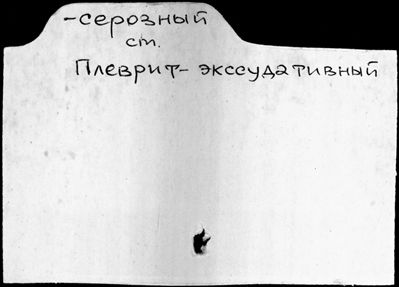 -серозный
ст.
Плеврит- экссудативный